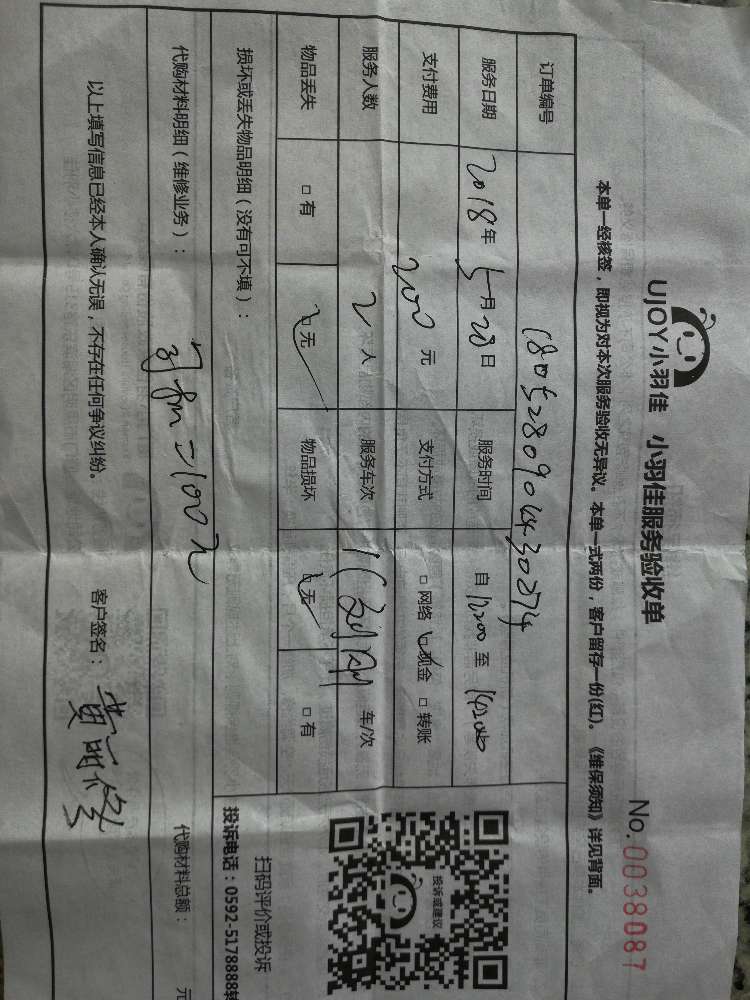 UJOY小羽佳 小羽佳服务验收单 No.0038087
本单一经核签，即视为对本次服务验收无异议。本单一式两份，客户留存一份(红)。《维保须知》详见背面。
订单编号 180528090430274
服务日期 2018年5月28日 服务时间 自12:00至14:00
支付费用 200元 支付方式 □网络 □现金 □转账
服务人数 2人 服务车次 1 车/次
物品丢失 □有 □无 物品损坏 □无 □有
损坏或丢失物品明细（没有可不填）：
代购材料明细（维修业务）： =100元 代购材料总额： 元
以上填写信息已经本人确认无误，不存在任何争议纠纷。 客户签名：黄明修
投诉或建议
扫码评价或投诉
投诉电话：0592-5178888转